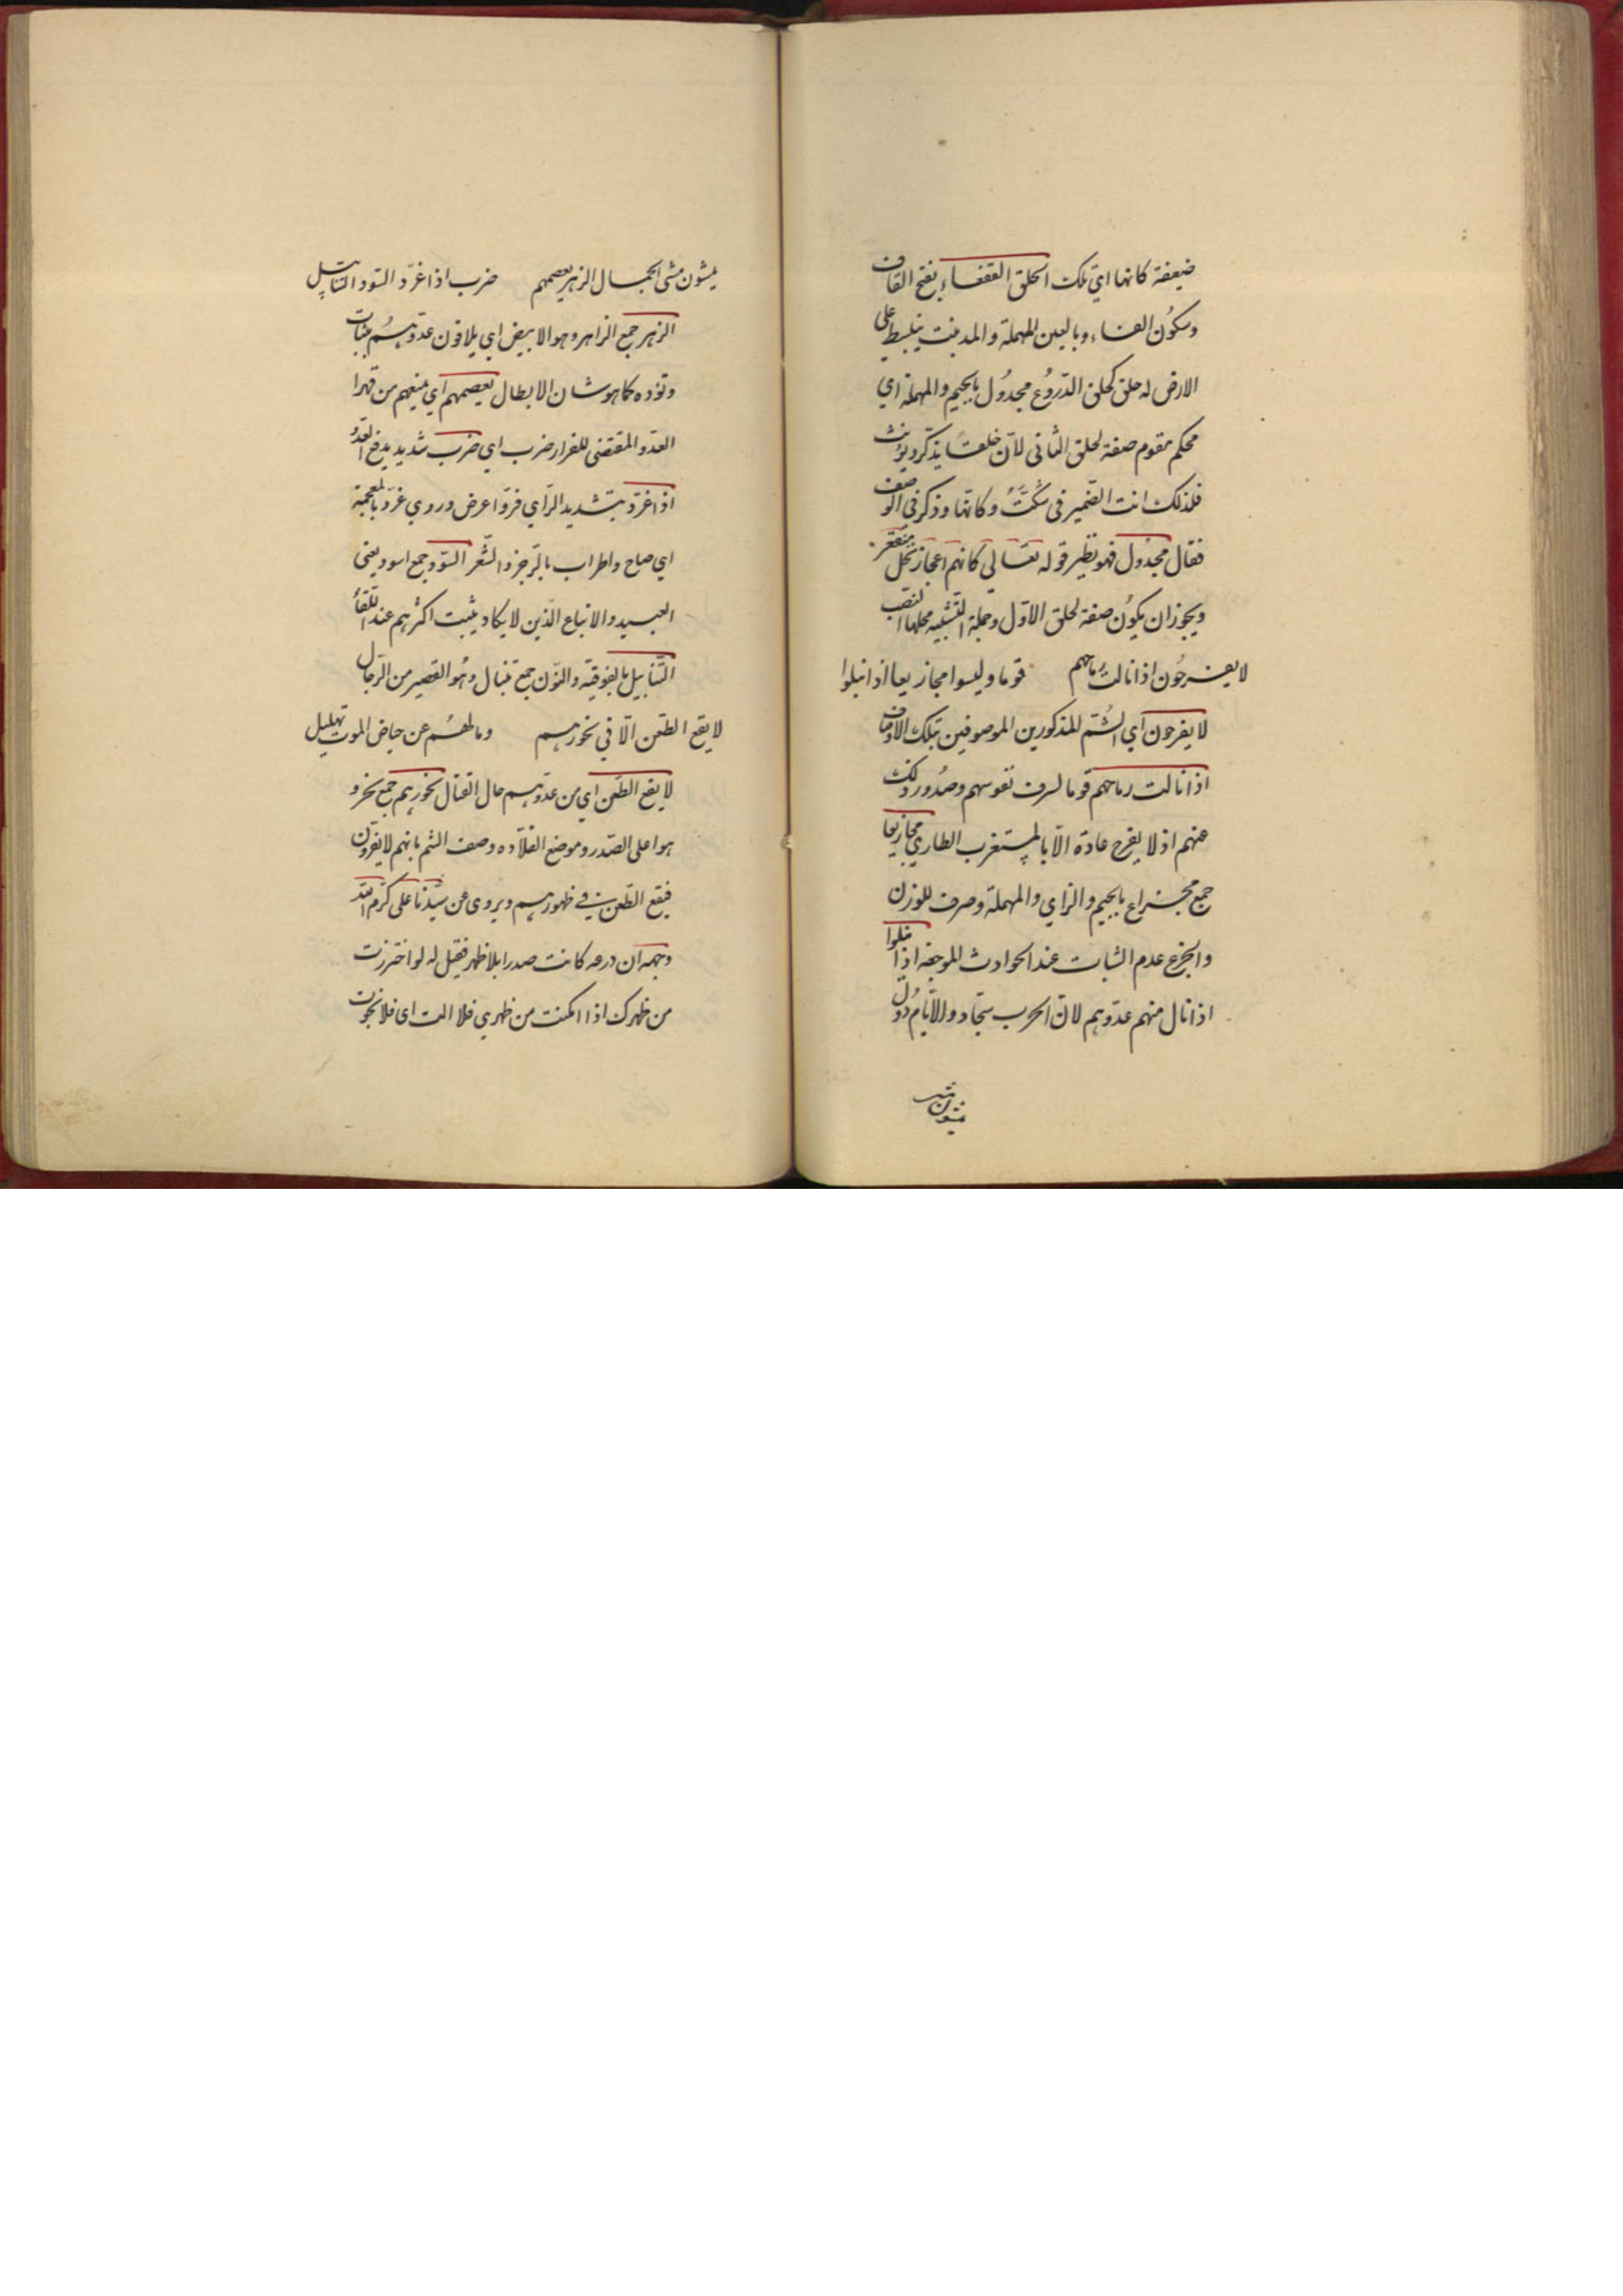 ضعيفة كانها اي تلك الحلق القفعاء بفتح القاف
وسكون الفاء وبالعين المهملة والمد نبت ينبسط على
الارض له حلق كحلق الدروع مجدول بالجيم والمهملة اي
محكم مقوم صفة لحلق الثانى لان حلقا يذكر ويونث
فلذلك انث الضمير فى شكت وكانها وذكر في الوصف
فقال مجدول فهو نظير قوله تعالي كانهم اعجاز نخل منقعر
ويجوز ان يكون صفة لحلق الاول وجملة التشبيه محلها النصب
لا يفرحون اذا نالت رماحهم قوما وليسوا مجازيعا اذا نيلوا
لا يفرحون اي الشم المذكورين الموصوفين بتلك الاوصاف
اذا نالت رماحهم قوما لشرف نفوسهم وصدور ذلك
عنهم اذ لا يفرح عادة الا بالمستغرب الطاري مجازيعا
جمع مجزاع بالجيم والزاي والمهملة وصرف للوزن
والجزع عدم الثبات عند الحوادث الموجعة اذا نيلوا
اذا نال منهم عدوهم لان الحرب سجاد والايام دول
يمشون مشى
يمشون مشى الجمال الزهر يعصمهم ضرب اذا غرد السود التنابيل
الزهر جمع الزاهر وهو الابيض اي يلاقون عدوهم بثبات
وتؤده كما هو شان الابطال يعصمهم اي يمنعهم من قهرا
العدو المقتضى للفرار ضرب اي ضرب شديد يدفع العدو
اذا غرد بتشديد الراي فرو اعرض وروي غرد بالمعجمة
اي صاح واطراب بالرجز والشعر السود جمع اسود يعنى
العبيد والاتباع الذين لا يكاد يثبت اكثرهم عند اللقاء
التنابيل بالفوقية والنون جمع تنبال وهو القصير من الرجال
لا يقع الطعن الا في نحورهم وما لهم عن حياض الموت تهليل
لا يقع الطعن اي من عدوهم حال القتال نحورهم جمع نحر و
هو اعلى الصدر وموضع القلاده وصف الشم بانهم لا يفرون
فيقع الطعن في ظهورهم ويروى عن سيدنا على كرم الله
وجهه ان درعه كانت صدرا بلا ظهر فقيل له لو احترزت
من ظهرك اذا امكنت من ظهري فلا الت اى فلا نجوت